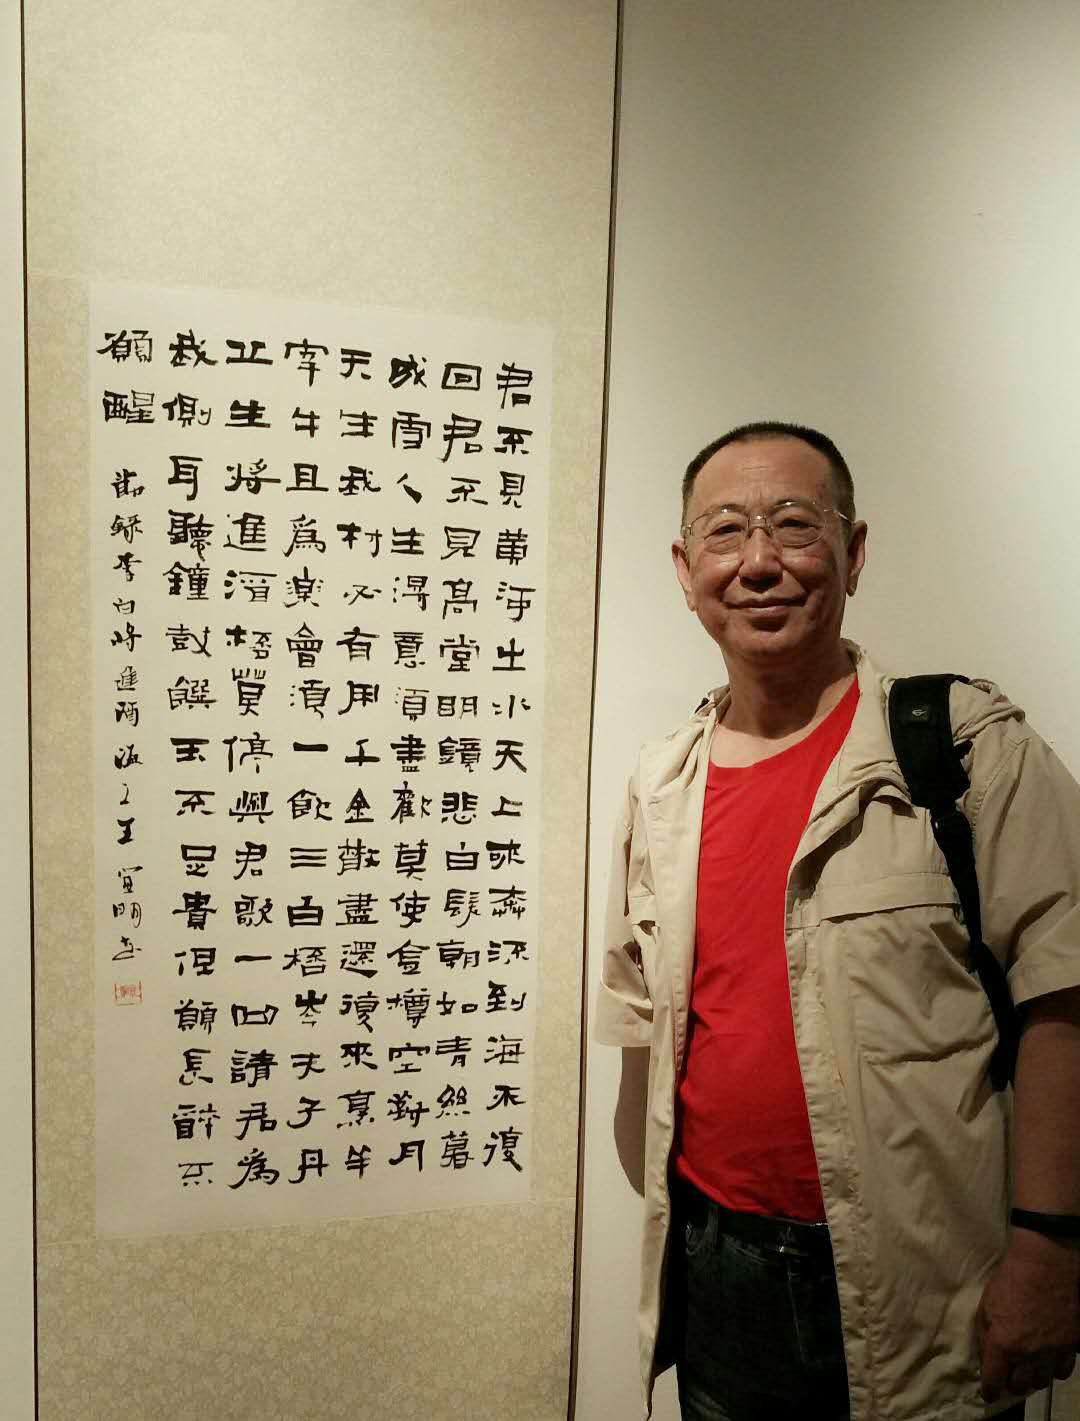 君不見黃河之水天上來奔流到海不復
回君不見高堂明鏡悲白髮朝如青絲暮
成雪人生得意須盡歡莫使金樽空對月
天生我材必有用千金散盡還復來烹羊
宰牛且爲樂會須一飲三百桮岑夫子丹
丘生將進酒桮莫停與君歌一曲請君爲
我側耳聽鐘鼓饌玉不足貴但願長醉不
願醒
節錄李白將進酒海上王宜明書